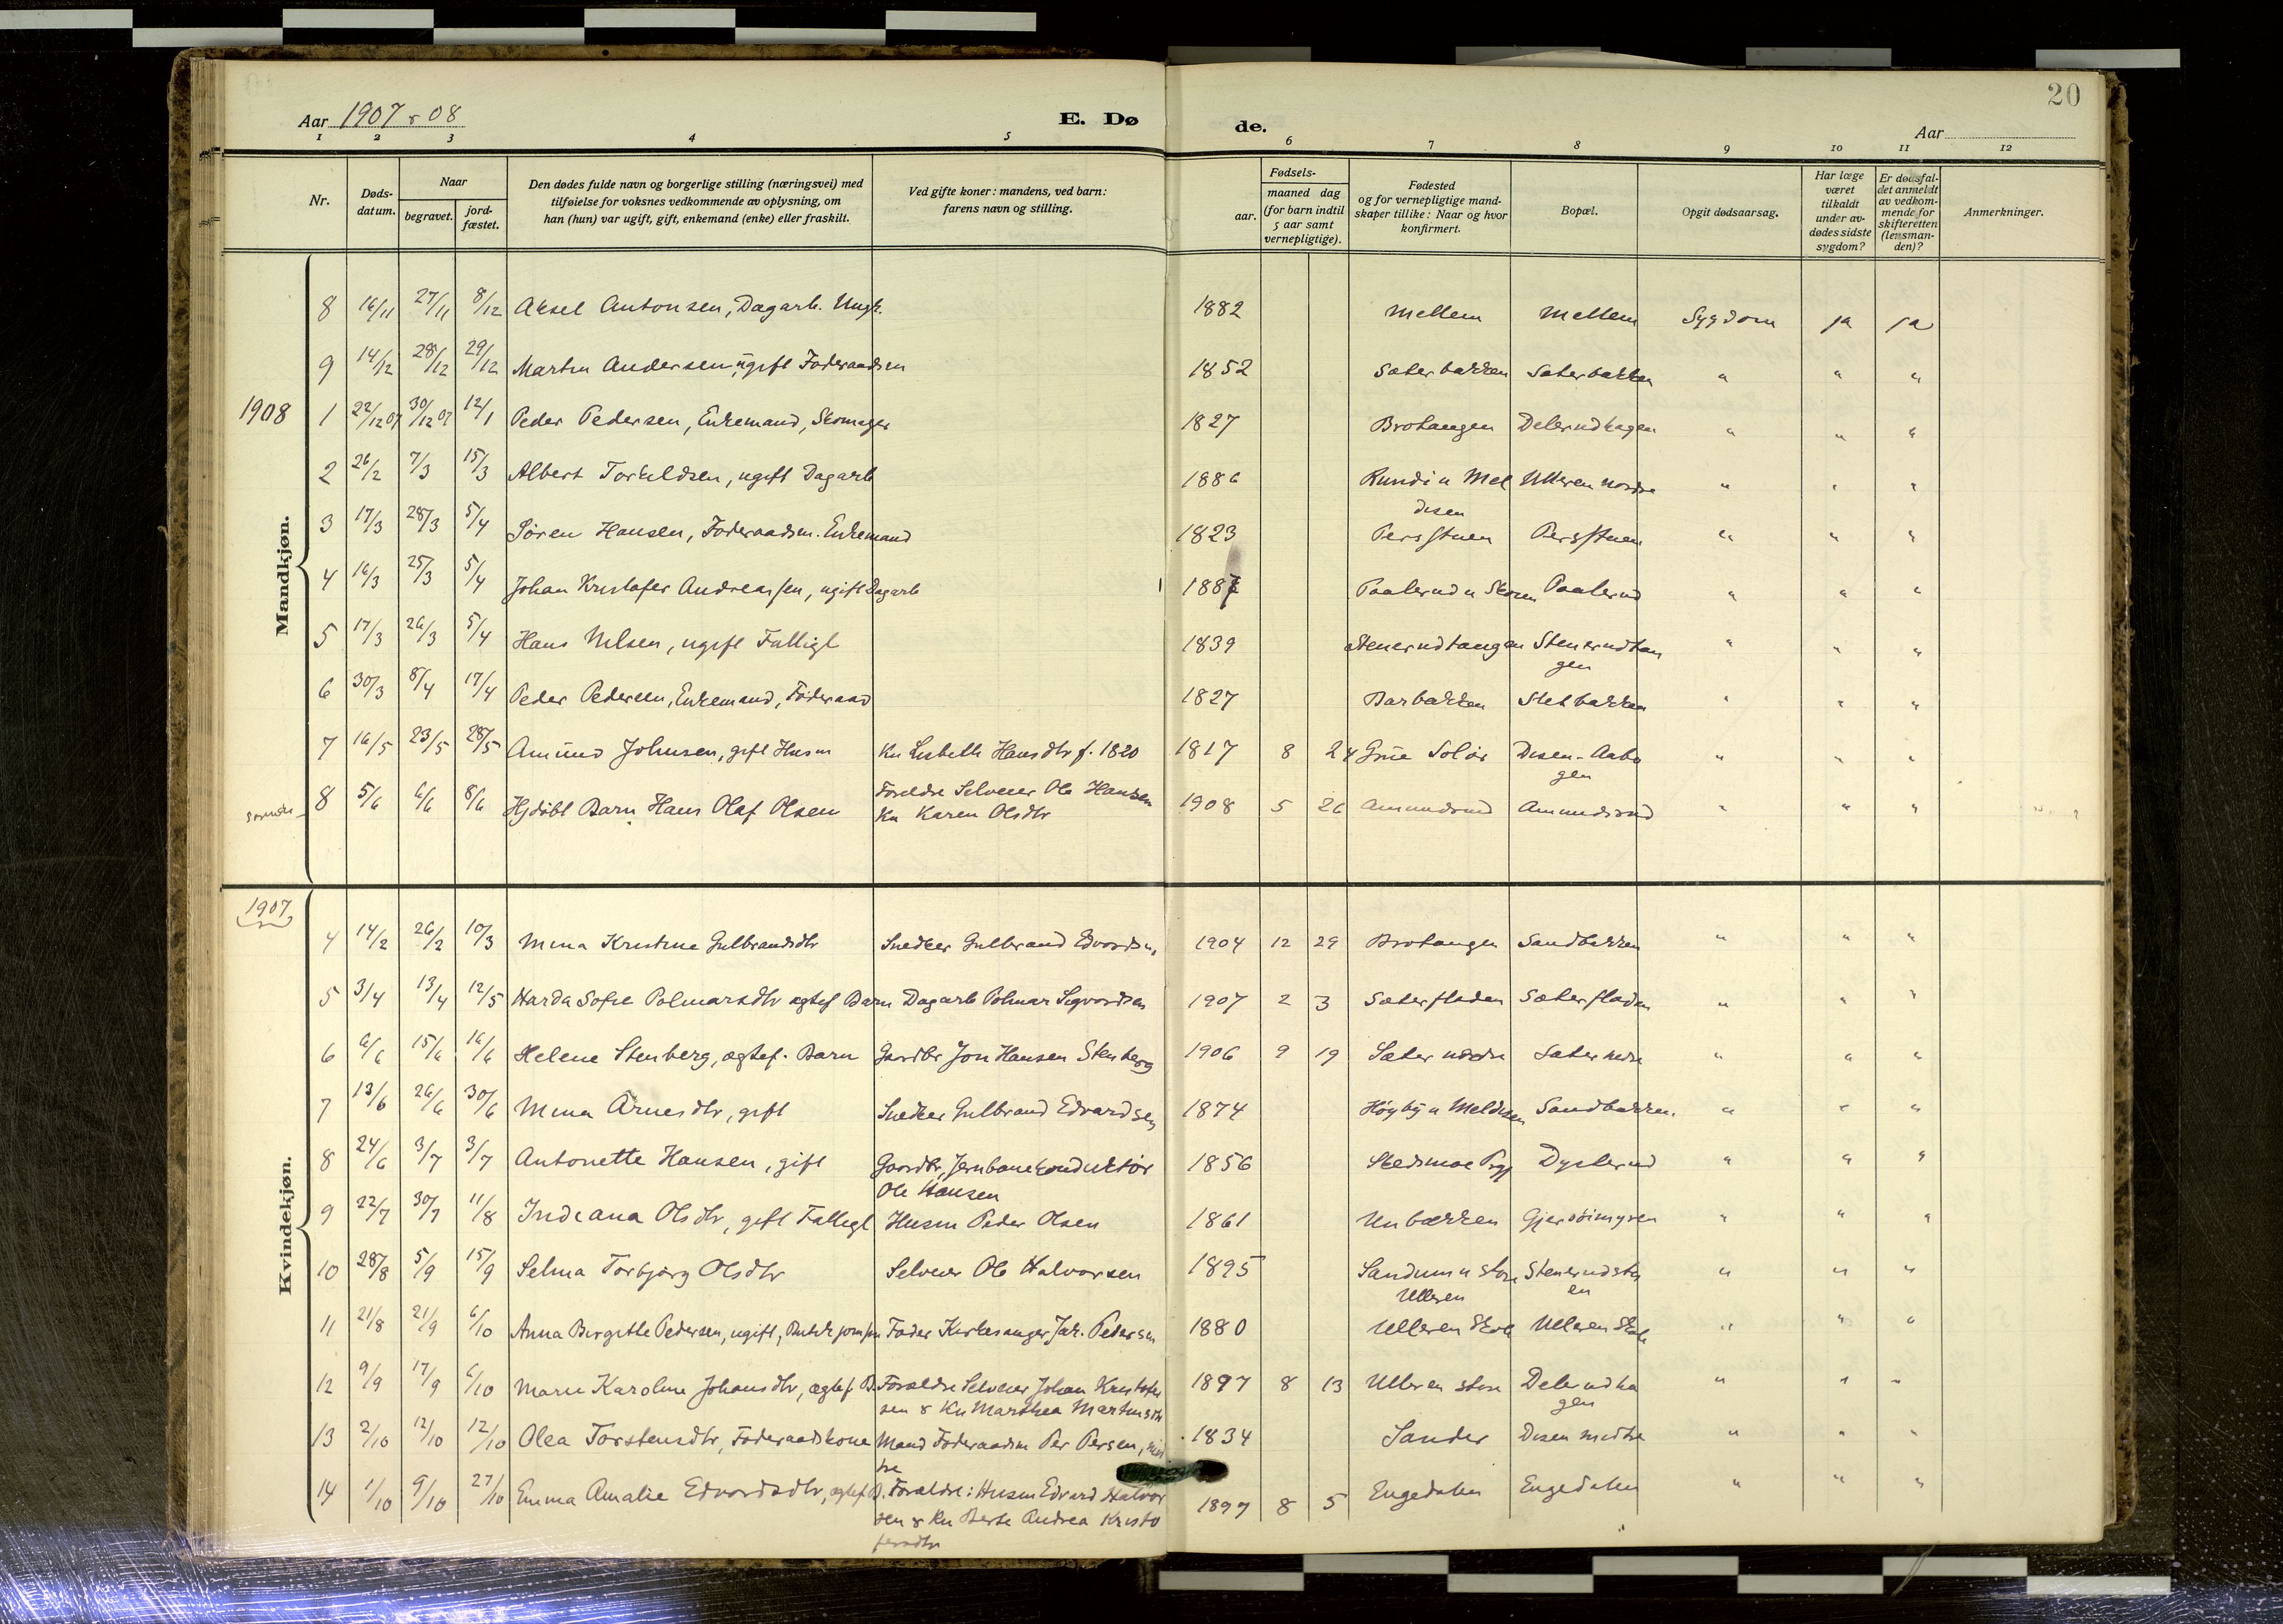 20
Aar 1907 & 08
E. Døde.
Aar
1 2 3 4 5 6 7 8 9 10 11 12
Nr.
Døds-datum.
Naar
begravet.
jord-fæstet.
Den dødes fulde navn og borgerlige stilling (næringsvei) med
tilføielse for voksnes vedkommende av oplysning, om
han (hun) var ugift, gift, enkemand (enke) eller fraskilt.
Ved gifte koner: mandens, ved barn:
farens navn og stilling.
Fødsels-
aar.
maaned dag
(for barn indtil
5 aar samt
vernepligtige).
Fødested
og for vernepligtige mand-
skaper tillike: Naar og hvor
konfirmert.
Bopæl.
Opgit dødsaarsag.
Har læge
været
tilkaldt
under av-
dødes sidste
sygdom?
Er dødsfal-
det anmeldt
av vedkom-
mende for
skifteretten
(lensman-
den)?
Anmerkninger.
Mandkjøn.
8 16/11 27/11 8/12 Aksel Antonsen, Dagarb. Ungk. 1882 Mellem Mellem Sygdom ja ja
9 14/12 28/12 29/12 Martin Andersen ugift Føderaadsm 1852 Sæterbakken Sæterbakken " " "
1908 1 22/12 07 30/12 07 12/1 Peder Pedersen, Enkemand, Skomager 1827 Brotangen Delerudhagen " " "
2 26/2 7/3 15/3 Albert Torkildsen, ugift Dagarb 1886 Rundi u Mel disen Ulleren nordre " " "
3 17/3 28/3 5/4 Søren Hansen, Føderaadsm. Enkemand 1823 Persstuen Persstuen " " "
4 16/3 25/3 5/4 Johan Kristofer Andreassen, ugift Dagarb 1887 Paalerud u Skoven Paalerud " " "
5 17/3 26/3 5/4 Hans Nilsen, ugift Fattigl 1839 Stenerudtangen Stenerudtan gen " " "
6 30/3 8/4 17/4 Peder Pedersen, Enkemand, Føderaad 1827 Barbakken Sletbakken " " "
7 16/5 23/5 28/5 Amund Johnsen, gift Husm Ku Lisbeth Hansdtr f. 1820 1817 8 24 Grue Solør Disen-Aabo gen " " "
8 5/6 6/6 8/6 Hjdøbt Barn Hans Olaf Olsen Foreldre Selveier Ole Hansen Ku Karen Olsdtr 1908 5 26 Amundsrud Amundsrud " " "
Kvindekjøn.
1907
4 14/2 26/2 10/3 Mina Kristine Gulbrandsdtr Snedker Gulbrand Edvardsen 1904 12 29 Brotangen Sandbakken " " "
5 3/4 13/4 12/5 Harda Sofie Polmarsdtr ægtef Barn Dagarb Polmar Sigvardsen 1907 2 3 Sæterfladen Sæterfladen " " "
6 6/6 15/6 16/6 Helene Stenberg, ægtef. Barn Gaardbr Jon Hansen Stenberg 1906 9 19 Sæter nedre Sæter nedre " " "
7 13/6 26/6 30/6 Mina Arnesdtr, gift Snedker Gulbrand Edvardsen 1874 Høyby u Meldisen Sandbakken. " " "
8 24/6 3/7 3/7 Antonette Hansen, gift Gaardbr, Jernbanekonduktør Ole Hansen 1856 Skedsmoe Pgj Dysterud " " "
9 22/7 30/7 11/8 Indiana Olsdtr, gift Fattigl Husm Peder Olsen 1861 Unbakken Gjersøimyren " " "
10 28/8 5/9 15/9 Selma Torbjørg Olsdtr Selveier Ole Halvorsen 1895 Sandum u store Ulleren Stenerudstu en " " "
11 21/8 21/9 6/10 Anna Birgitte Pedersen, ugift, Butikjomfru Fader Kirkesanger Joh. Pedersen 1880 Ulleren Skole Ulleren Skole " " "
12 9/9 17/9 6/10 Marie Karoline Johansdtr, ægtef. B. Forældre Selveier Johan Kristofer sen & Ku Marthea Martinsdtr 1897 8 13 Ulleren store Delerudha gen " " "
13 2/10 12/10 12/10 Olea Torstensdtr, Føderaadskone Mand Føderaadsm Per Persen, 1834 Sander Disen midtre " " "
14 1/10 9/10 27/10 Emma Amalie Edvardsdtr, ægtef B. Forældre: Husm Edvard Halvor sen & Ku Berte Andrea Kristo fersdtr 1897 8 5 Engedalen Engedalen " " "